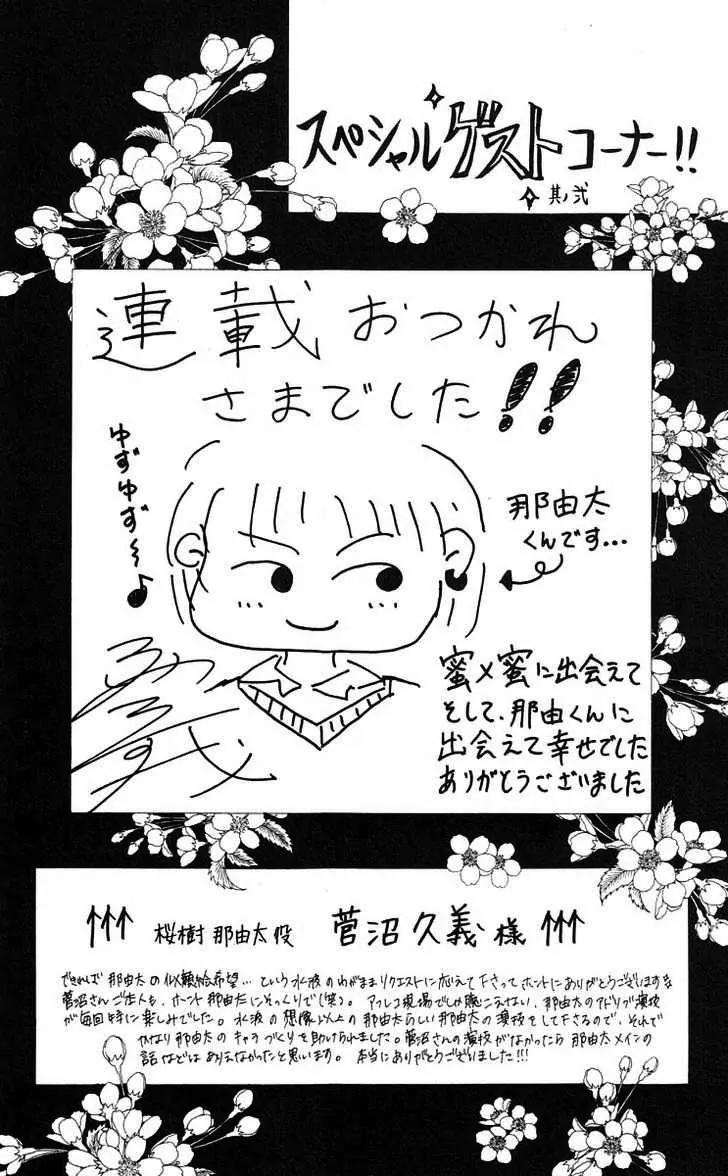 スペシャルゲストコーナー!!
其ノ弐
連載おつかれ
さまでした!!
ゆずゆず〜♪
那由太
くんです…
蜜×蜜に出会えて
そして、那由くんに
出会えて幸せでした
ありがとうございました
↑↑↑ 桜樹 那由太役 菅沼久義様 ↑↑↑
できれば 那由太の似顔絵希望… という 水波のわがままリクエストに応えて下さってホントにありがとうございます
菅沼さんご本人も、ホント 那由太にそっくりで(笑)。アフレコ現場でしか聴こえない、那由太のアドリブ演技
が毎回特に楽しみでした。水波の想像以上の那由太らしい那由太の演技をして下さるので、それで
かなり那由太のキャラづくりを助けられました。菅沼さんの演技がなかったら 那由太メインの
話などはありえなかったと思います。本当にありがとうございました!!!